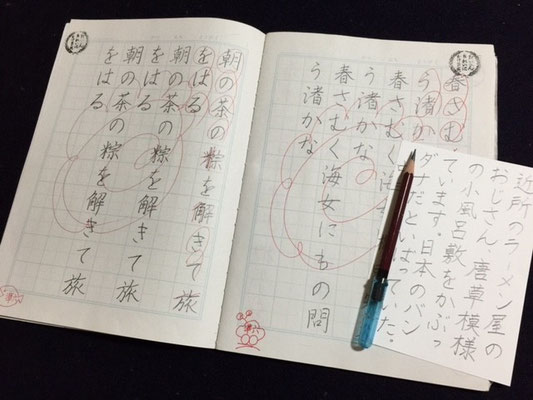 春さむ
う渚か
春さむく海
う渚かな
春さむく海女にもの問
う渚かな
朝の茶の粽を解きて旅
をはる
朝の茶の粽を解きて旅
をはる
朝の茶の粽を解きて旅
をはる
近所のラーメン屋の
おじさん 唐草模様
の小風呂敷をかぶっ
ています。日本のバン
ダナだといばっていた。